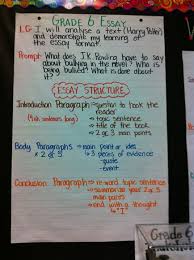 GRADE 6 ESSAY
L.G: I will analyse a text (Harry Potter)
and demonstrate my learning of
the essay format.
Prompt: What does J.K. Rowling have to say
about bullying in the novel? Who is
being bullied? What is done about
it?
ESSAY STRUCTURE
Introduction Paragraph = question to hook the
reader
- topic sentence
- title of the book
- 2 or 3 main points
Body Paragraphs - main point or idea
x 2 or 3
↳ 3 pieces of evidence
- quote
- event
Conclusion Paragraph → re-word topic sentence
- summarize your 2 or 3
main points
- end with a thought
"I"
Grade 6